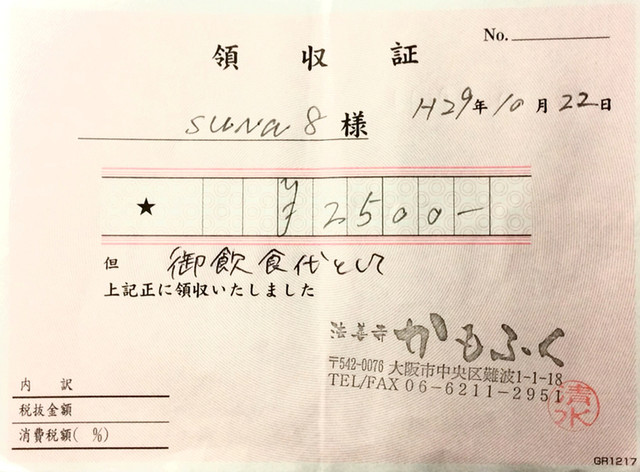 No.
領収証
H29年10月22日
suna8 様
★ ¥2500-
但 御飲食代として
上記正に領収いたしました
法善寺 かもふく
〒542-0076 大阪市中央区難波1-1-18
TEL/FAX 06-6211-2951
清水
内訳
税抜金額
消費税額( %)
GR1217